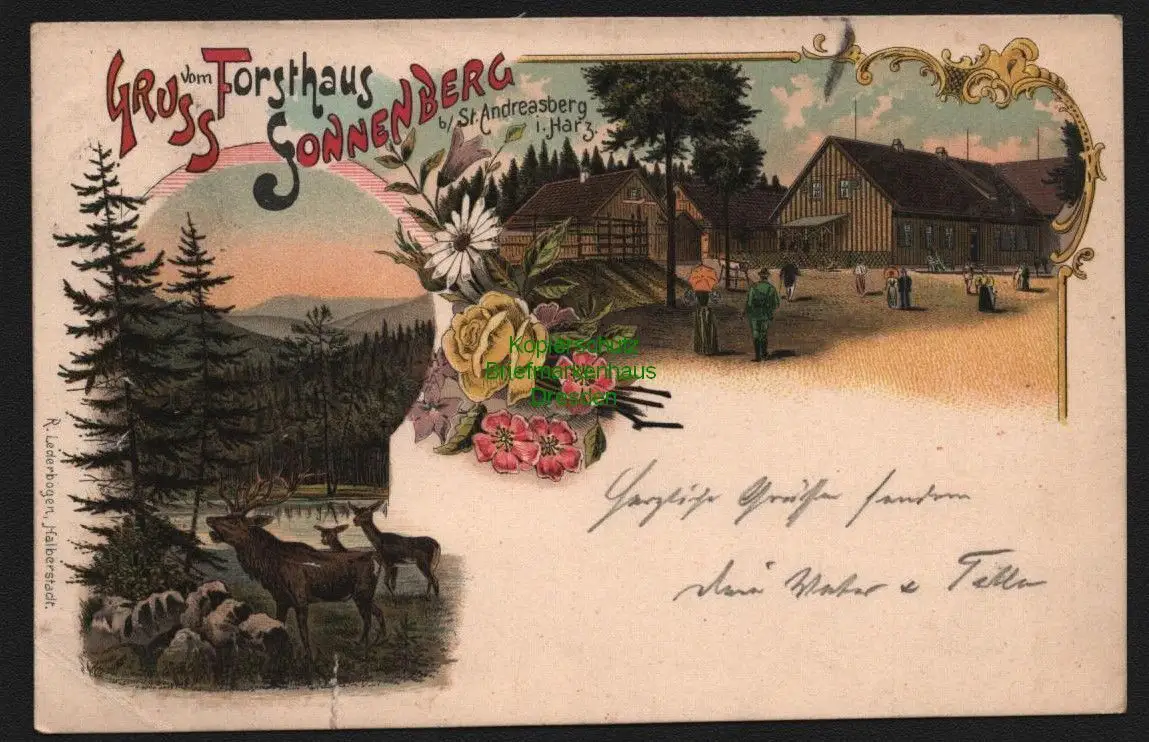 GRUSS vom Forsthaus
SONNENBERG
b/ St. Andreasberg
i. Harz.
Kopierschutz
Briefmarkenhaus
Dresden
R. Lederbogen, Halberstadt.
Herzliche Grüße senden
Dein Vater &